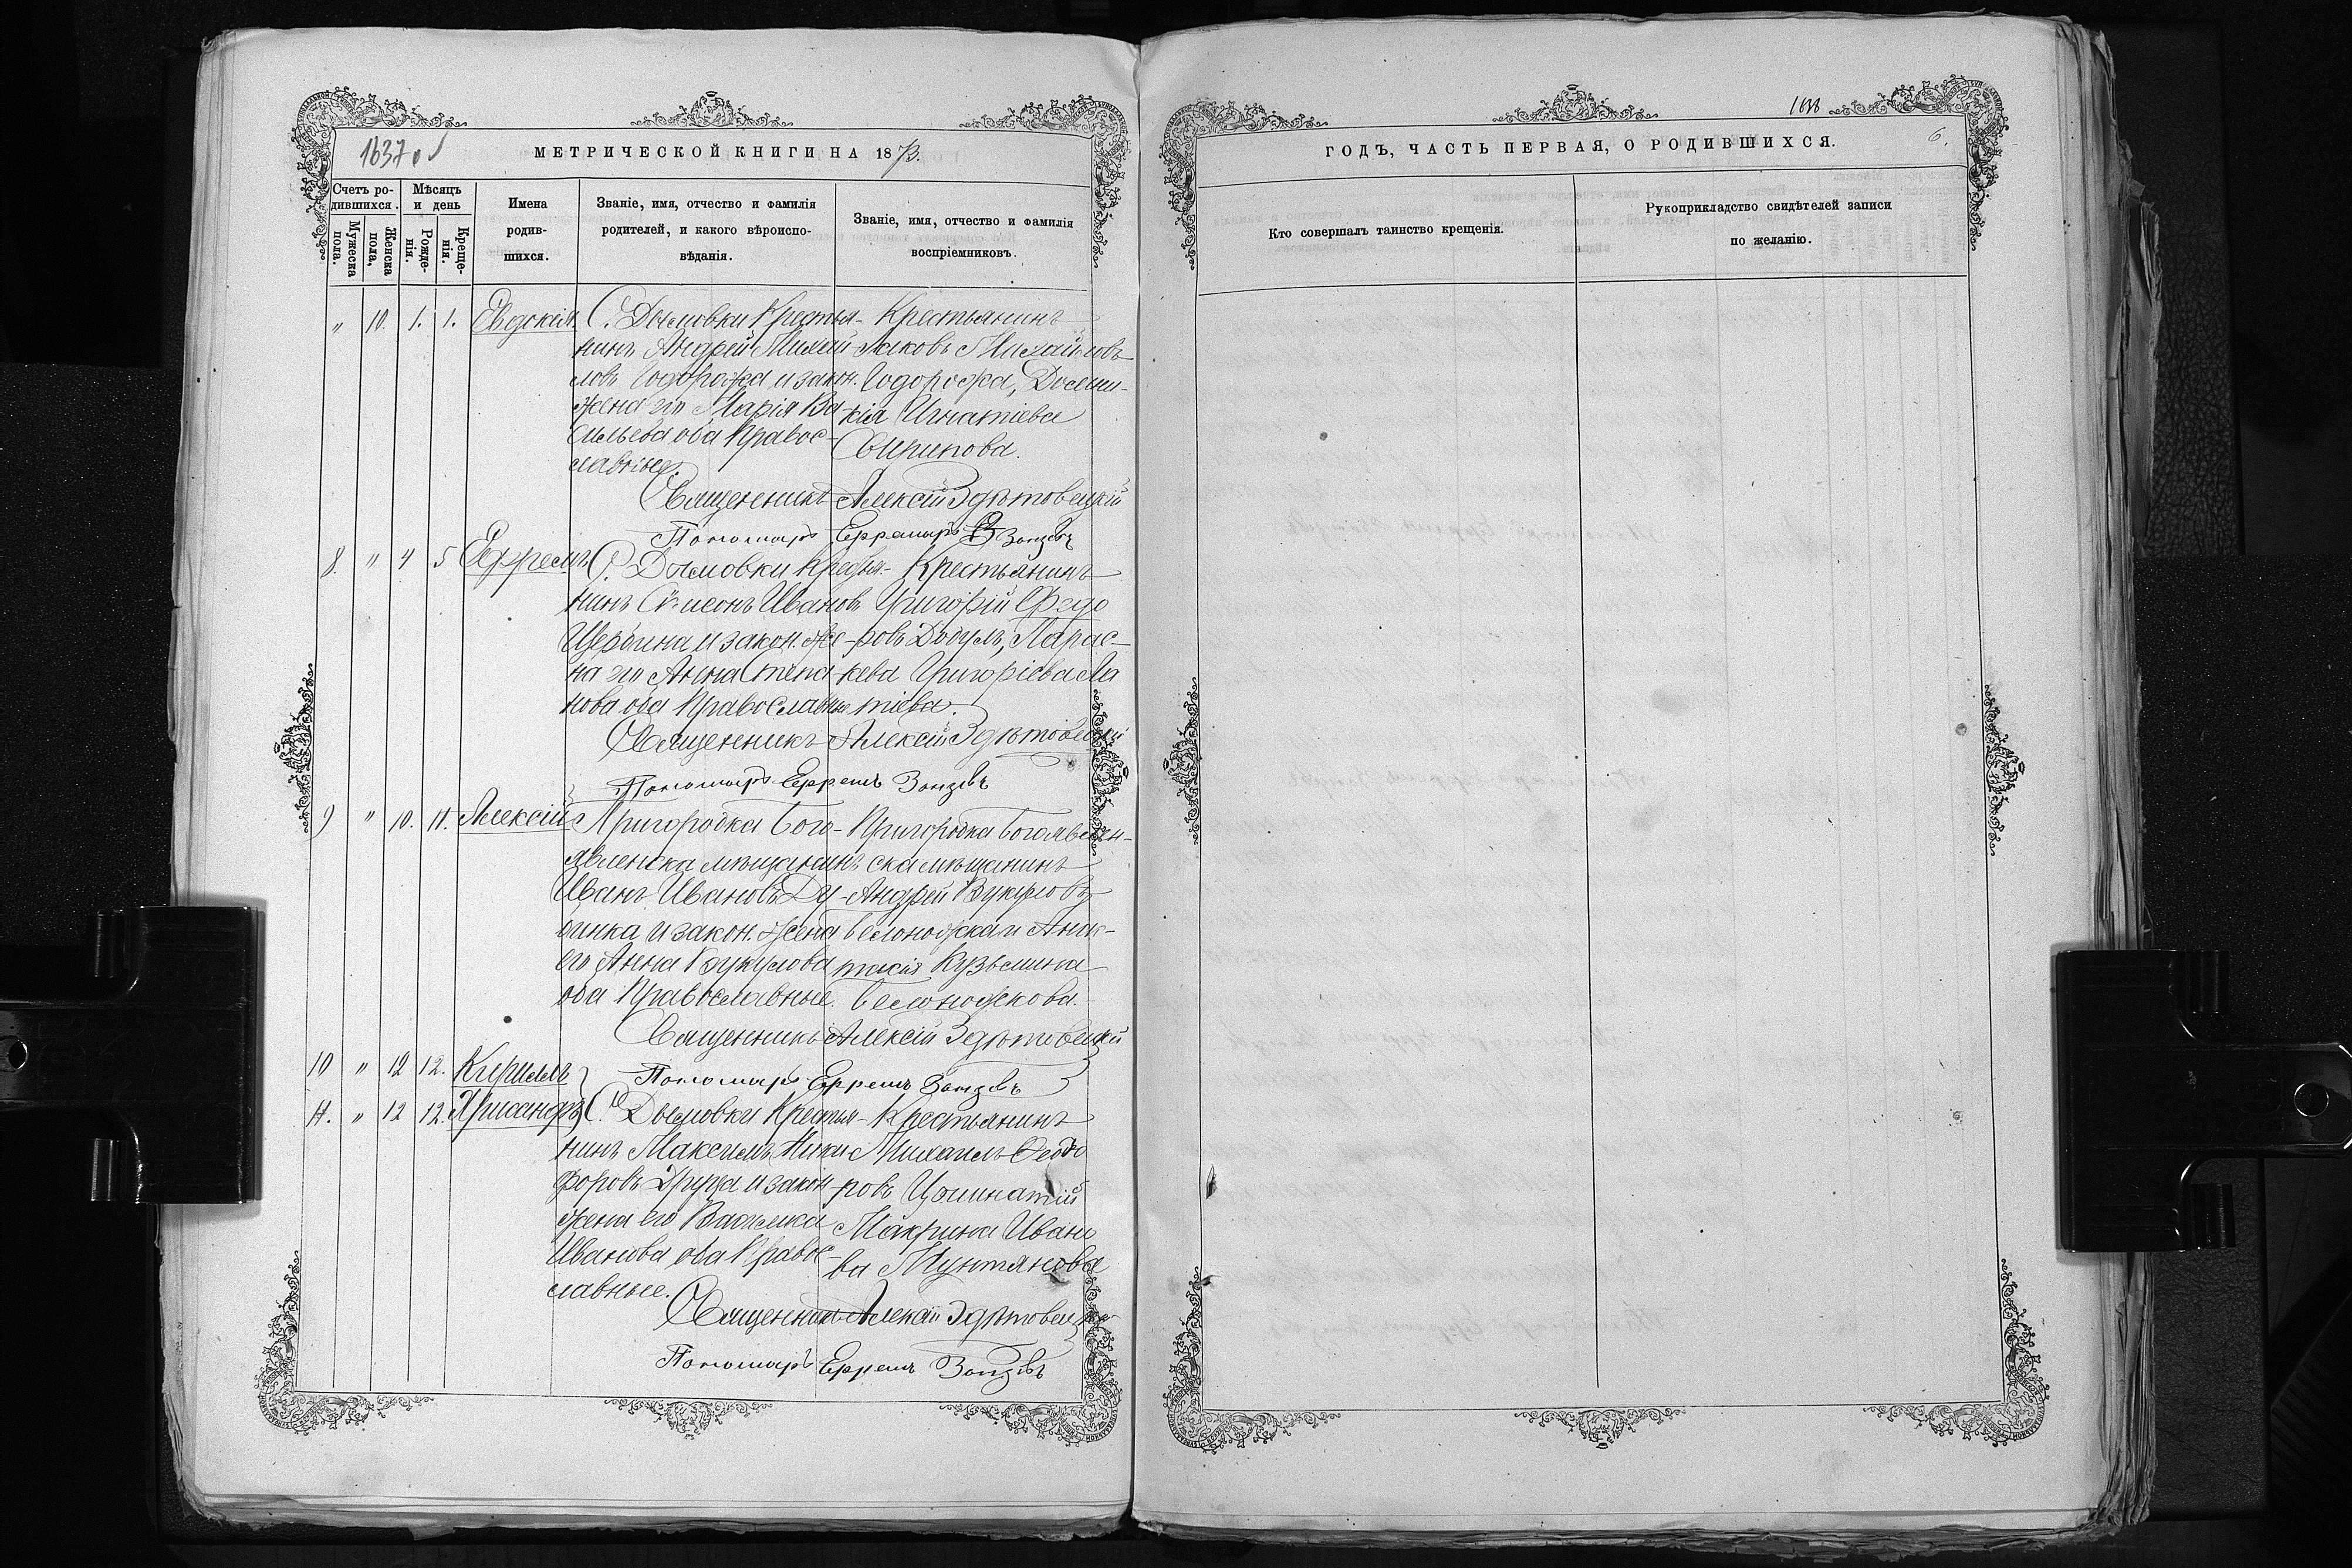 1637 об
МЕТРИЧЕСКОЙ КНИГИ НА 1873.
Счетъ ро-
дившихся.
Мужеска
пола.
Женска
пола,
Мѣсяцъ
и день
Рожде-
нія.
Креще-
нія.
Имена
родив-
шихся.
Званіе, имя, отчество и фамилія
родителей, и какого вѣроиспо-
вѣданія.
Званіе, имя, отчество и фамилія
воспріемниковъ.
" 10. 1. 1. Евдокія
С. Дымовки Крестья-
нинъ Андрей Михай-
ловъ Годорожа и закон.
жена его Марія Ва-
сильева оба Правос-
лавные.
Крестьянинъ
Яковъ Михайловъ
Годорожа, Досеми-
кія Игнатіева
Священникъ Алексій
Пономарь Ефремъ
8. " 4 5 Ефремъ
С. Дымовки Крестья-
нинъ Симеонъ Ивановъ
Щербина и закон. же-
на его Анна Степа-
нова оба Православные
Крестьянинъ
Григорій Федо
ровъ Парас-
кева Григоріева Ла
тіева.
Священникъ Алексій
Пономарь Ефремъ
9 " 10. 11. Алексій
Пригородка Бого-
явленска мѣщанинъ
Иванъ Ивановъ Ду-
бинка и закон. жена
его Анна Вукулова
оба Православные.
Пригородка Богоявлен-
ска мѣщанинъ
Андрей Вукуловъ
Белоножка и Анас-
тасія Кузьмина
Белоножкова.
Священникъ Алексій
Пономарь Ефремъ
10 " 12 12. Кириллъ
11. " 12 12. Хрисанфъ
С. Дымовки Крестья-
нинъ Максимъ Ники
форовъ и закон
жена его Василиса
Иванова оба Правос-
лавные.
Крестьянинъ
Михаилъ Феодо
ровъ
Макрина Ивано
ва Мунтянова
Священникъ Алексій
Пономарь Ефремъ
1638
6.
ГОДЪ, ЧАСТЬ ПЕРВАЯ, О РОДИВШИХСЯ.
Кто совершалъ таинство крещенія.
Рукоприкладство свидѣтелей записи
по желанію.